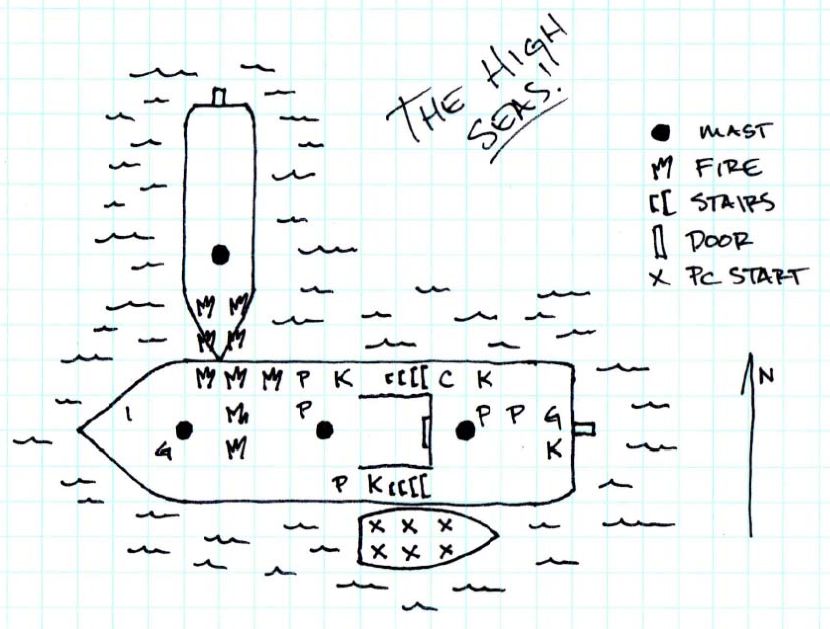 THE HIGH
SEAS!!
MAST
FIRE
STAIRS
DOOR
X PC START
N
P K C K
I P P P G
G K
P K
X X X
X X X